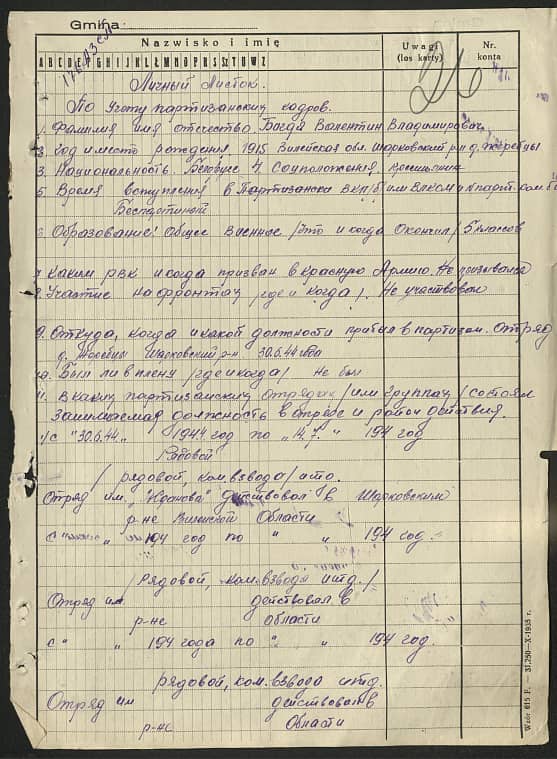 Gmina:
Nazwisko i imię
Uwagi
(los karty)
Nr.
konta
A B C D E F G H I J K L Ł M N O P R S Ś T U W Z
26
Личный Листок.
По Учету партизанских кадров.
1. Фамилия имя отчество. Валентин Владимирович
2. Год и место рождения, 1915 Вилейская обл. Шарковский р-н д.
3. Национальность. Белорус 4. Соцположения,
5. Время вступления в Партизански ВКП/б или ВЛКСМ
Беспартиный
6. Образование! Общее Военные /Что и когда Окончил/ 5 классов
7. Каким РВК и когда призван в Красную Армию. Не призывался
8. Участие на фронтах /где и когда/. Не участвовал
9. Откуда, когда и какой должности прибыл в партизан. Отряд
д. Шарковский р-н 30.6.44 года
10. Был ли в плену /где и когда/ Не был
11. в каких партизанских отрядах /или группах/ состоял
Занимаемая должность в отряде и район действия.
/с "30.6.44" 1944 год по "14.7." 194 год
Рядовой
/рядовой, ком. взвода/ итд.
Отряд им, действовал в Шарковским
р-не Области
194 год по " " 194 год.
/рядовой, ком. взвода итд./
Отряд им действовал в
р-не области
с " " 194 года по " " 194 год.
рядовой, ком. взвода итд.
Отряд им действовал в
р-не Области
Wzór 615 F. — 31.250—X-1935 r.